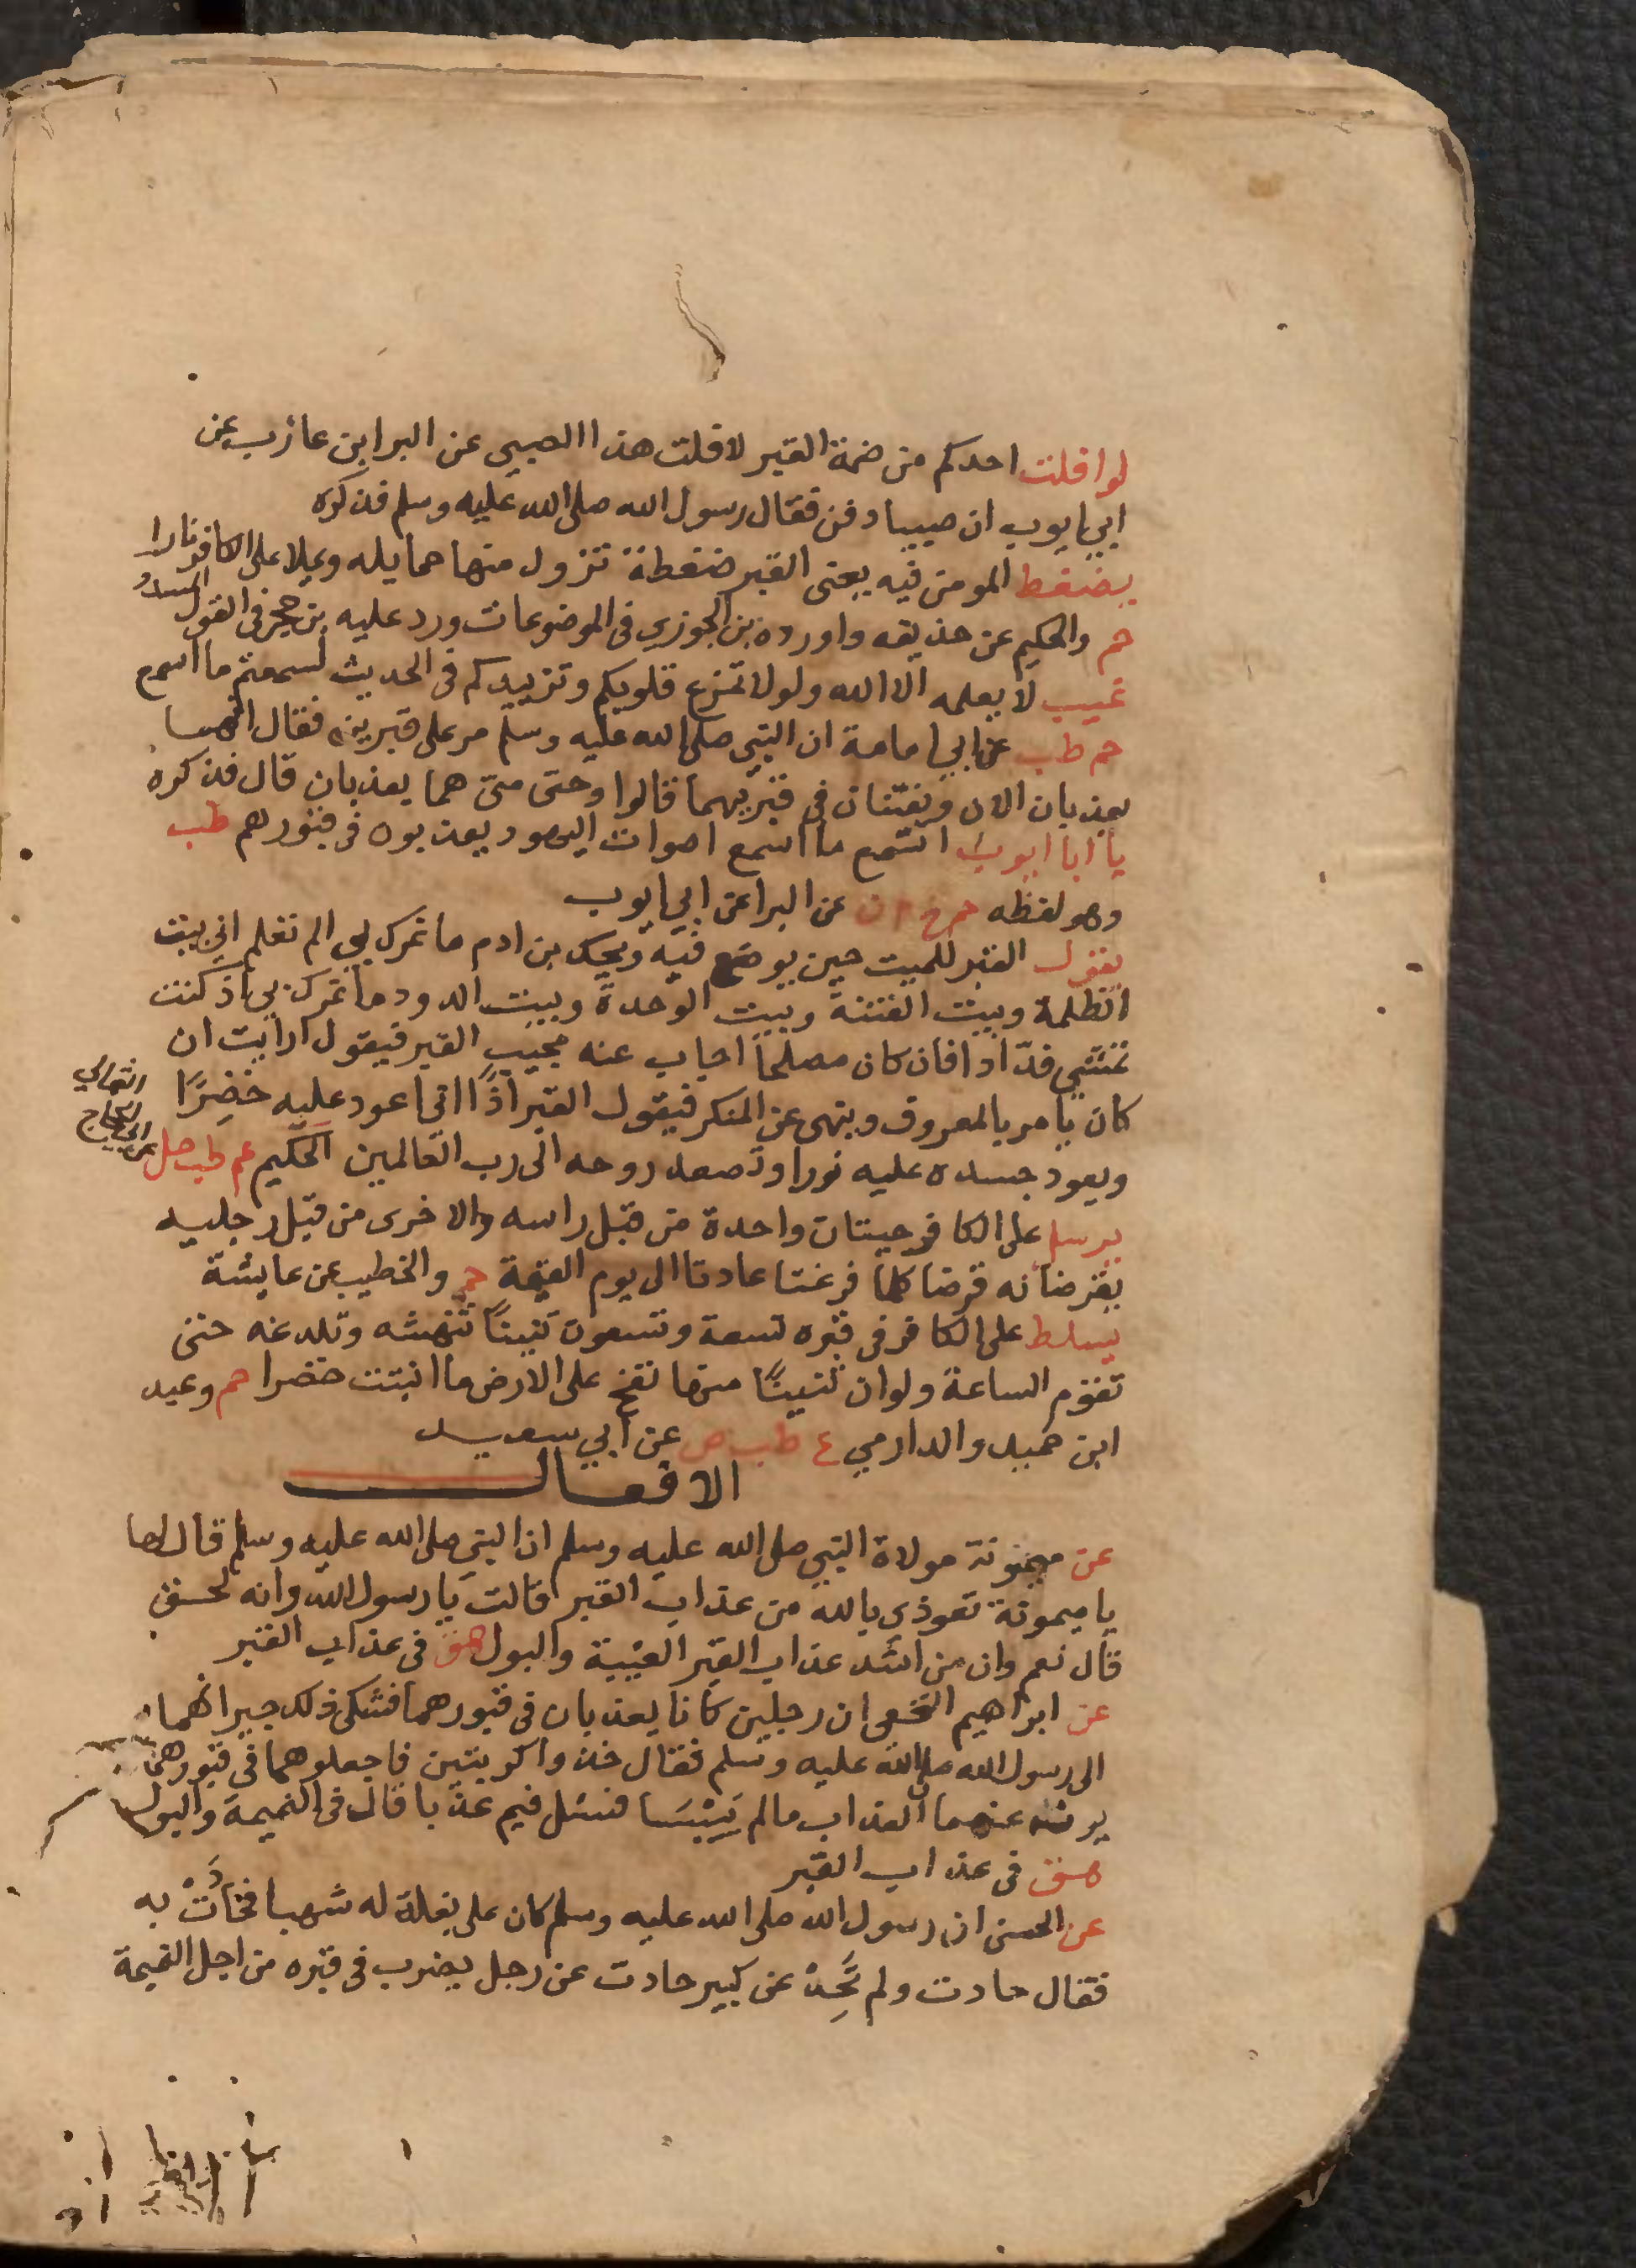 لو افلت احدكم من ضمة القبر لافلت هذا الصبي عن البرا بن عازب عن
ابي ايوب ان صبيبا دفن فقال رسول الله صلى الله عليه وسلم فذكره
يضغط المومن فيه يعني القبر ضغطة تزول منها حمايله ويملا على الكافر نارا
حم والحكيم عن حذيفه واورده بن الجوزي في الموضوعات ورد عليه بن حجر في القول المسدد
غيب لا يعلمه الا الله ولولا تمزع قلوبكم وتزييدكم في الحديث لسمعتم ما اسمع
حم طب عن ابي امامة ان النبي صلى الله عليه وسلم مر على قبرين فقال انهما
يعذبان الان ويفتنان في قبريهما قالوا وحتى متى هما يعذبان قال فذكره
يا ابا ايوب اتسمع ما اسمع اصوات اليهود يعذبون في قبورهم طب
وهو لفظه حم خ م ن عن البرا عن ابي ايوب
يقول القبر للميت حين يوضع فيه ويحك بن ادم ما غرك بي الم تعلم اني بيت
الظلمة وبيت الفتنة وبيت الوحدة وبيت الدود ما غرك بي اذ كنت
تمشي فدّادا فان كان مصلحا اجاب عنه مجيب القبر فيقول ارايت ان
كان يامر بالمعروف وينهى عن المنكر فيقول القبر اذًا اني اعود عليه خضِرًا
ويعود جسده عليه نورا وتصعد روحه الى رب العالمين الحكيم ع طب حل
عن ابي الحجاج
الثمالي
يرسل على الكافر حيتان واحدة من قبل راسه والاخرى من قبل رجليه
يقرضانه قرضا كلما فرغتا عادتا الى يوم القيمة حم والخطيب عن عايشة
يسلط على الكافر في قبره تسعة وتسعون تنينًا تنهشه وتلدغه حتى
تقوم الساعة ولو ان تنينًا منها نفخ على الارض ما انبتت خضرا حم وعبد
ابن حميد والدارمي ع طب ص عن ابي سعيد
الافعال
عن ميمونة مولاة النبي صلى الله عليه وسلم ان النبي صلى الله عليه وسلم قال لها
يا ميمونة تعوذي بالله من عذاب القبر قالت يا رسول الله وانه لحق
قال نعم وان من اشد عذاب القبر الغيبة والبول هق في عذاب القبر
عن ابراهيم النخعي ان رجلين كانا يعذبان في قبورهما فشكى ذلك جيرانهما
الى رسول الله صلى الله عليه وسلم فقال خذوا كربتين فاجعلوهما في قبورهما
يرفه عنهما العذاب ما لم يَيْبَسَا فسئل فيم عذبا قال في النميمة والبول
هق في عذاب القبر
عن الحسن ان رسول الله صلى الله عليه وسلم كان على بغلة له شهبا فحَادَتْ به
فقال حادت ولم تَحِدْ عن كبير حادت عن رجل يضرب في قبره من اجل النميمة